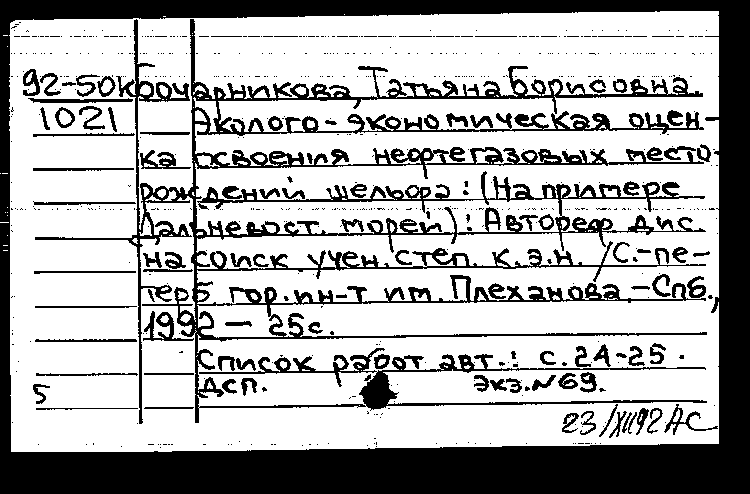 92-50к Бочарникова, Татьяна Борисовна.
1021 Эколого-экономическая оцен-
ка освоения нефтегазовых место-
рождений шельфа: (На примере
Дальневост. морей): Автореф дис.
на соиск учен. степ. к.э.н. /С.-пе-
терб гор. ин-т им. Плеханова. -Спб.,
1992 - 25с.
Список работ авт.: с.24-25.
5 ДСП. Экз.N69.
23/XII92 АС